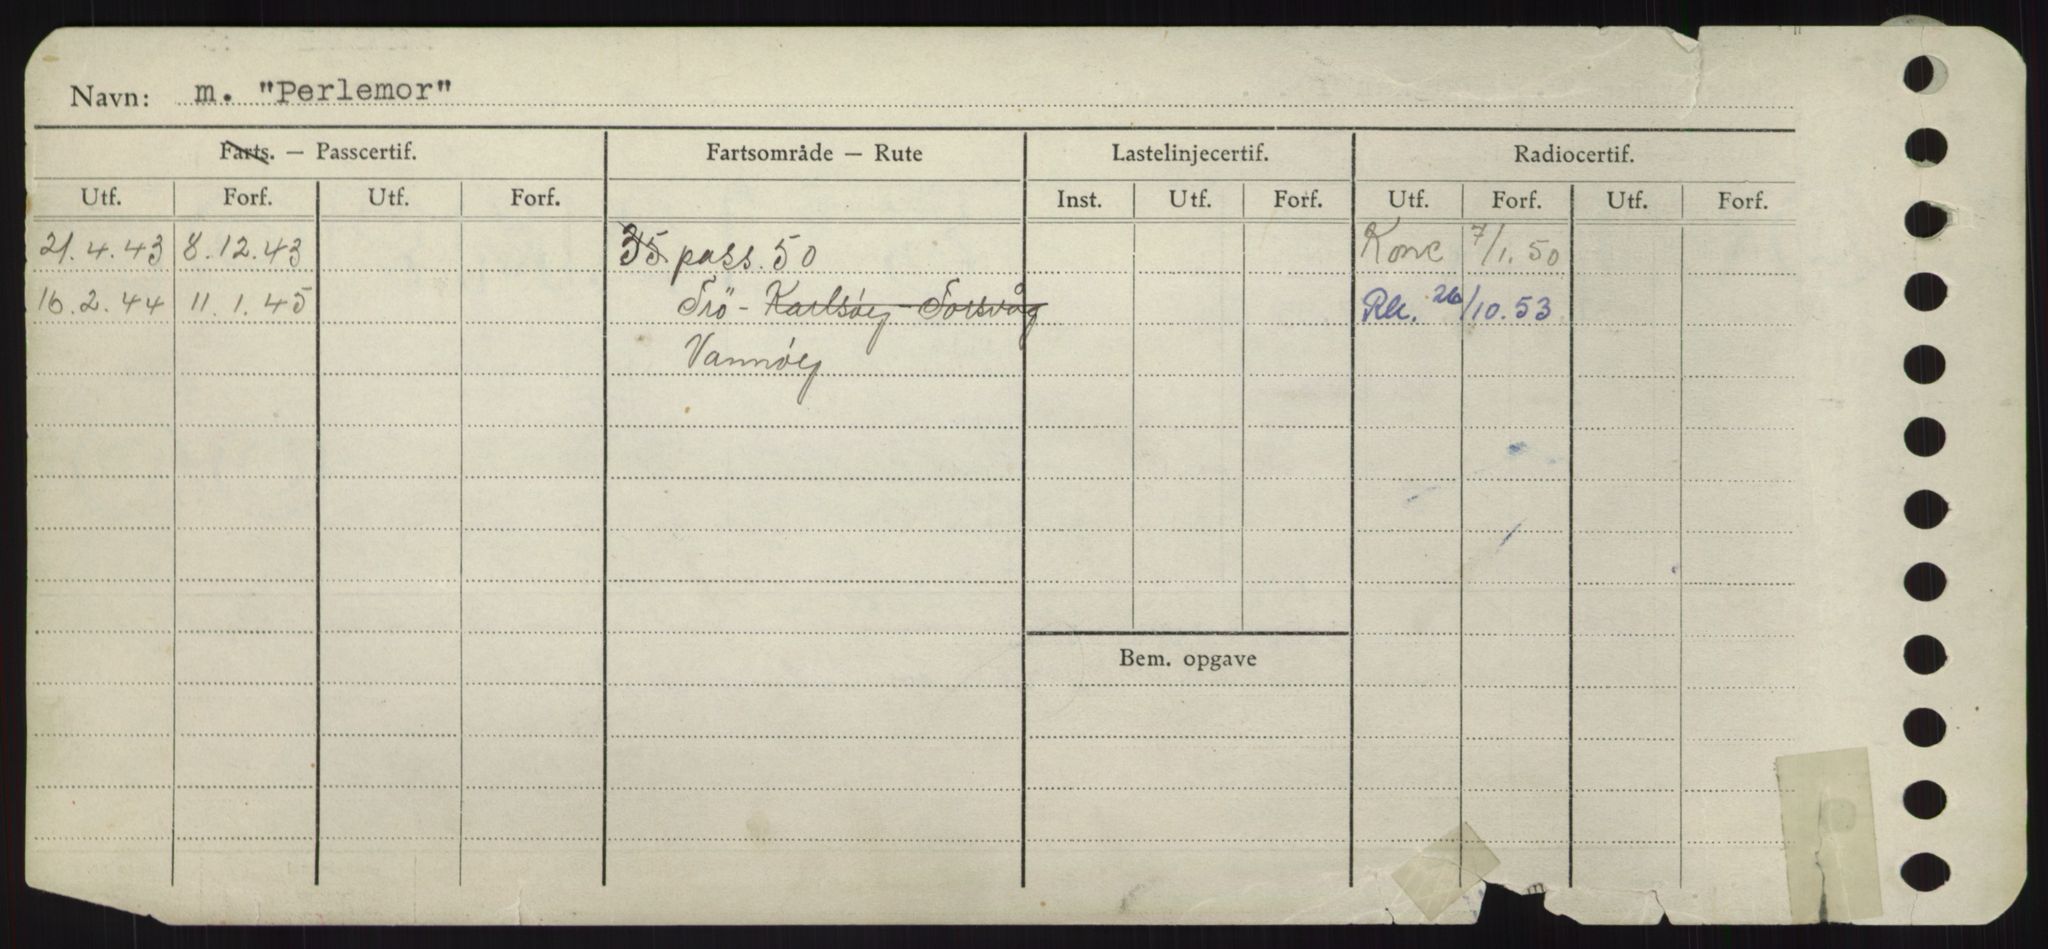 Navn: m. "Perlemor"
Farts. — Passcertif. Fartsområde — Rute Lastelinjecertif. Radiocertif.
Utf. Forf. Utf. Forf. Inst. Utf. Forf. Utf. Forf. Utf. Forf.
21.4.43 8.12.43 35 pass. 50 Konc 7/1.50
16.2.44 11.1.45 Trö - Karlsöy - Torsvåg 26/10.53
Vannöy
Bem. opgave